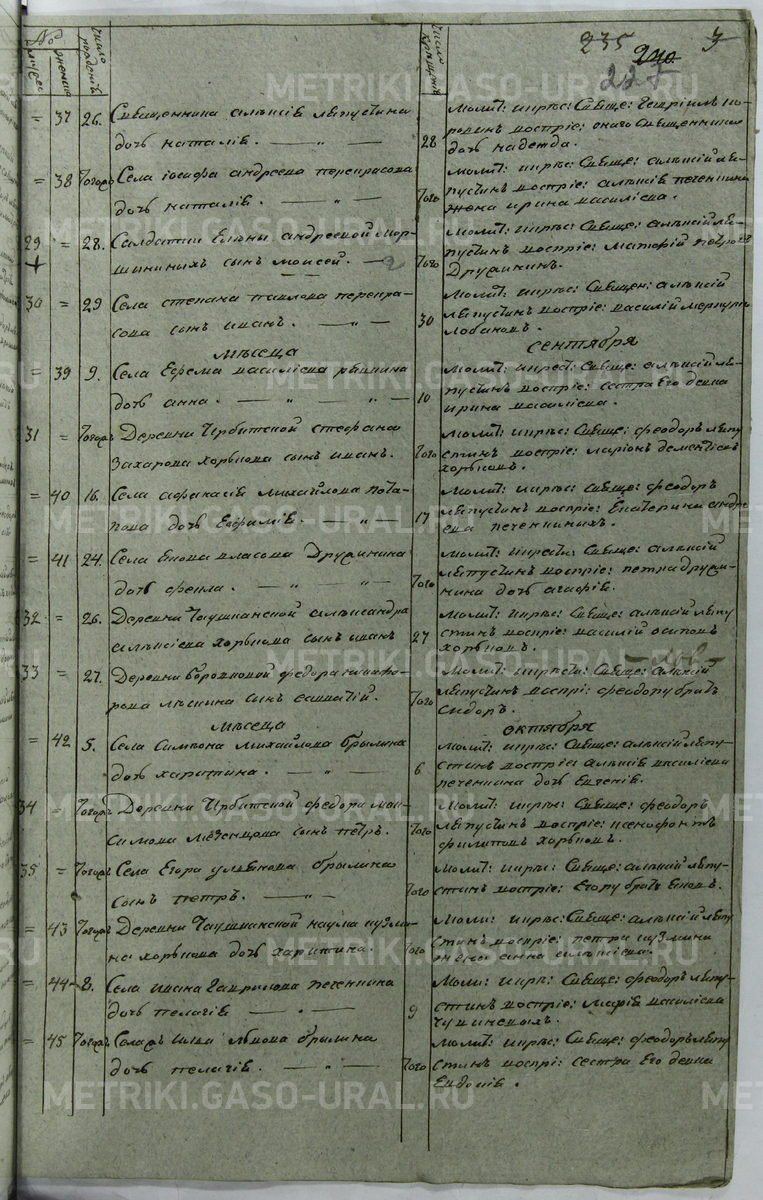 235 240 3
225
№ число рожденiй число крещенiй
мужес женско
= 37 26. Священника алексiя лепустина
дочь наталiя. — " — 28
молит: и крес: Свяще: Гаврiилъ по-
восприе: онаго Священника
дочь надежда.
= 38 Тогожъ Села iосифа андреева перепрасова
дочь наталiя. — " — Того
молит: и крес: Свяще: алексiй ле-
пустинъ восприе: алексiя печенкина
жена ирина василiева.
29 = 28. Салдатки Елены андреевой мор-
шининыхъ сынъ моисей. — Того
молит: и крес: Свяще: алексiй ле-
пустинъ восприе: матфiй петровъ
Дружининъ.
30 = 29 Села степана павлова перепра-
сова сынъ иванъ. — " — 30
молит: и крес: Свящ: алексiй
лепустинъ восприе: василiй меркурье
лобановъ.
мѣсеца сентября
= 39 9. Села Ефрема василiева
дочь анна. — " — " — 10
молит: и крест: Свяще: алексiй ле-
пустинъ восприе: сестра Его девка
ирина василiева.
31 = Тогожъ Деревни Ирбитской стефана
Захарова хорькова сынъ иванъ. Того
молит: и крес: Свяще: феодоръ лепу
стинъ восприе: ларiонъ дементiевъ
хорьковъ.
= 40 16. Села афанасiя михайлова пота-
пова дочь Евфимiя. — " — 17
молит: и крес: Свяще: феодоръ
лепустинъ восприе: Екатерина андре
ева печенкиныхъ.
= 41 24. Села власова Дружинина
дочь фекла. — " — " — Того
молит: и крест: Свяще: алексiй
лепустинъ восприе: петра дружи-
нина дочь агафiя.
32 = 26. Деревни Чаушканской александра
алексiева хорькова сынъ иванъ 27
молит: и крес: Свяще: алексiй лепу
стинъ восприе: василiй осиповъ
хорьковъ.
33 = 27. Деревни федора никифо-
рова сынъ . Того
молит: и крест: Свяще: алексiй
лепустинъ воспри: феодору братъ
сидоръ.
мѣсеца октября
= 42 5. Села Симеона михайлова брылина
дочь харитина. — " — 6
молит: и крес: Свяще: алексiй лепу-
стинъ восприе: алексiя василiева
печенкина дочь Евгенiя.
34 = Тогожъ Деревни Ирбитской федора мак-
симова мезенцова сынъ петръ. Того
молит: и крес: Свяще: феодоръ
лепустинъ восприе: ксенофонтъ
филиповъ хорьковъ.
35 = Тогожъ Села Егора ульянова брылина
сынъ петръ. — " — Того
молит: и крес: Свяще: алексiй лепу-
стинъ восприе: Егору братъ .
= 43 Тогожъ Деревни Чаушканской наума кузми-
на хорькова дочь харитина. Того
моли: и крес: Свяще: алексiй лепу
стинъ восприе: петра кузмина
жена анна алексiева.
= 44 8. Села ивана гаврилова печенкина
дочь пелагiя — " — 9
моли: и крес: Свяще: феодоръ лепу-
стинъ восприе: марiя василiева
.
= 45 Тогожъ Села ильи львова брылина
дочь пелагiя. — " — Того
молит: и крес: Свяще: феодоръ лепу
стинъ воспри: сестра Его девка
Евдокiя.
METRIKI.GASO-URAL.RU